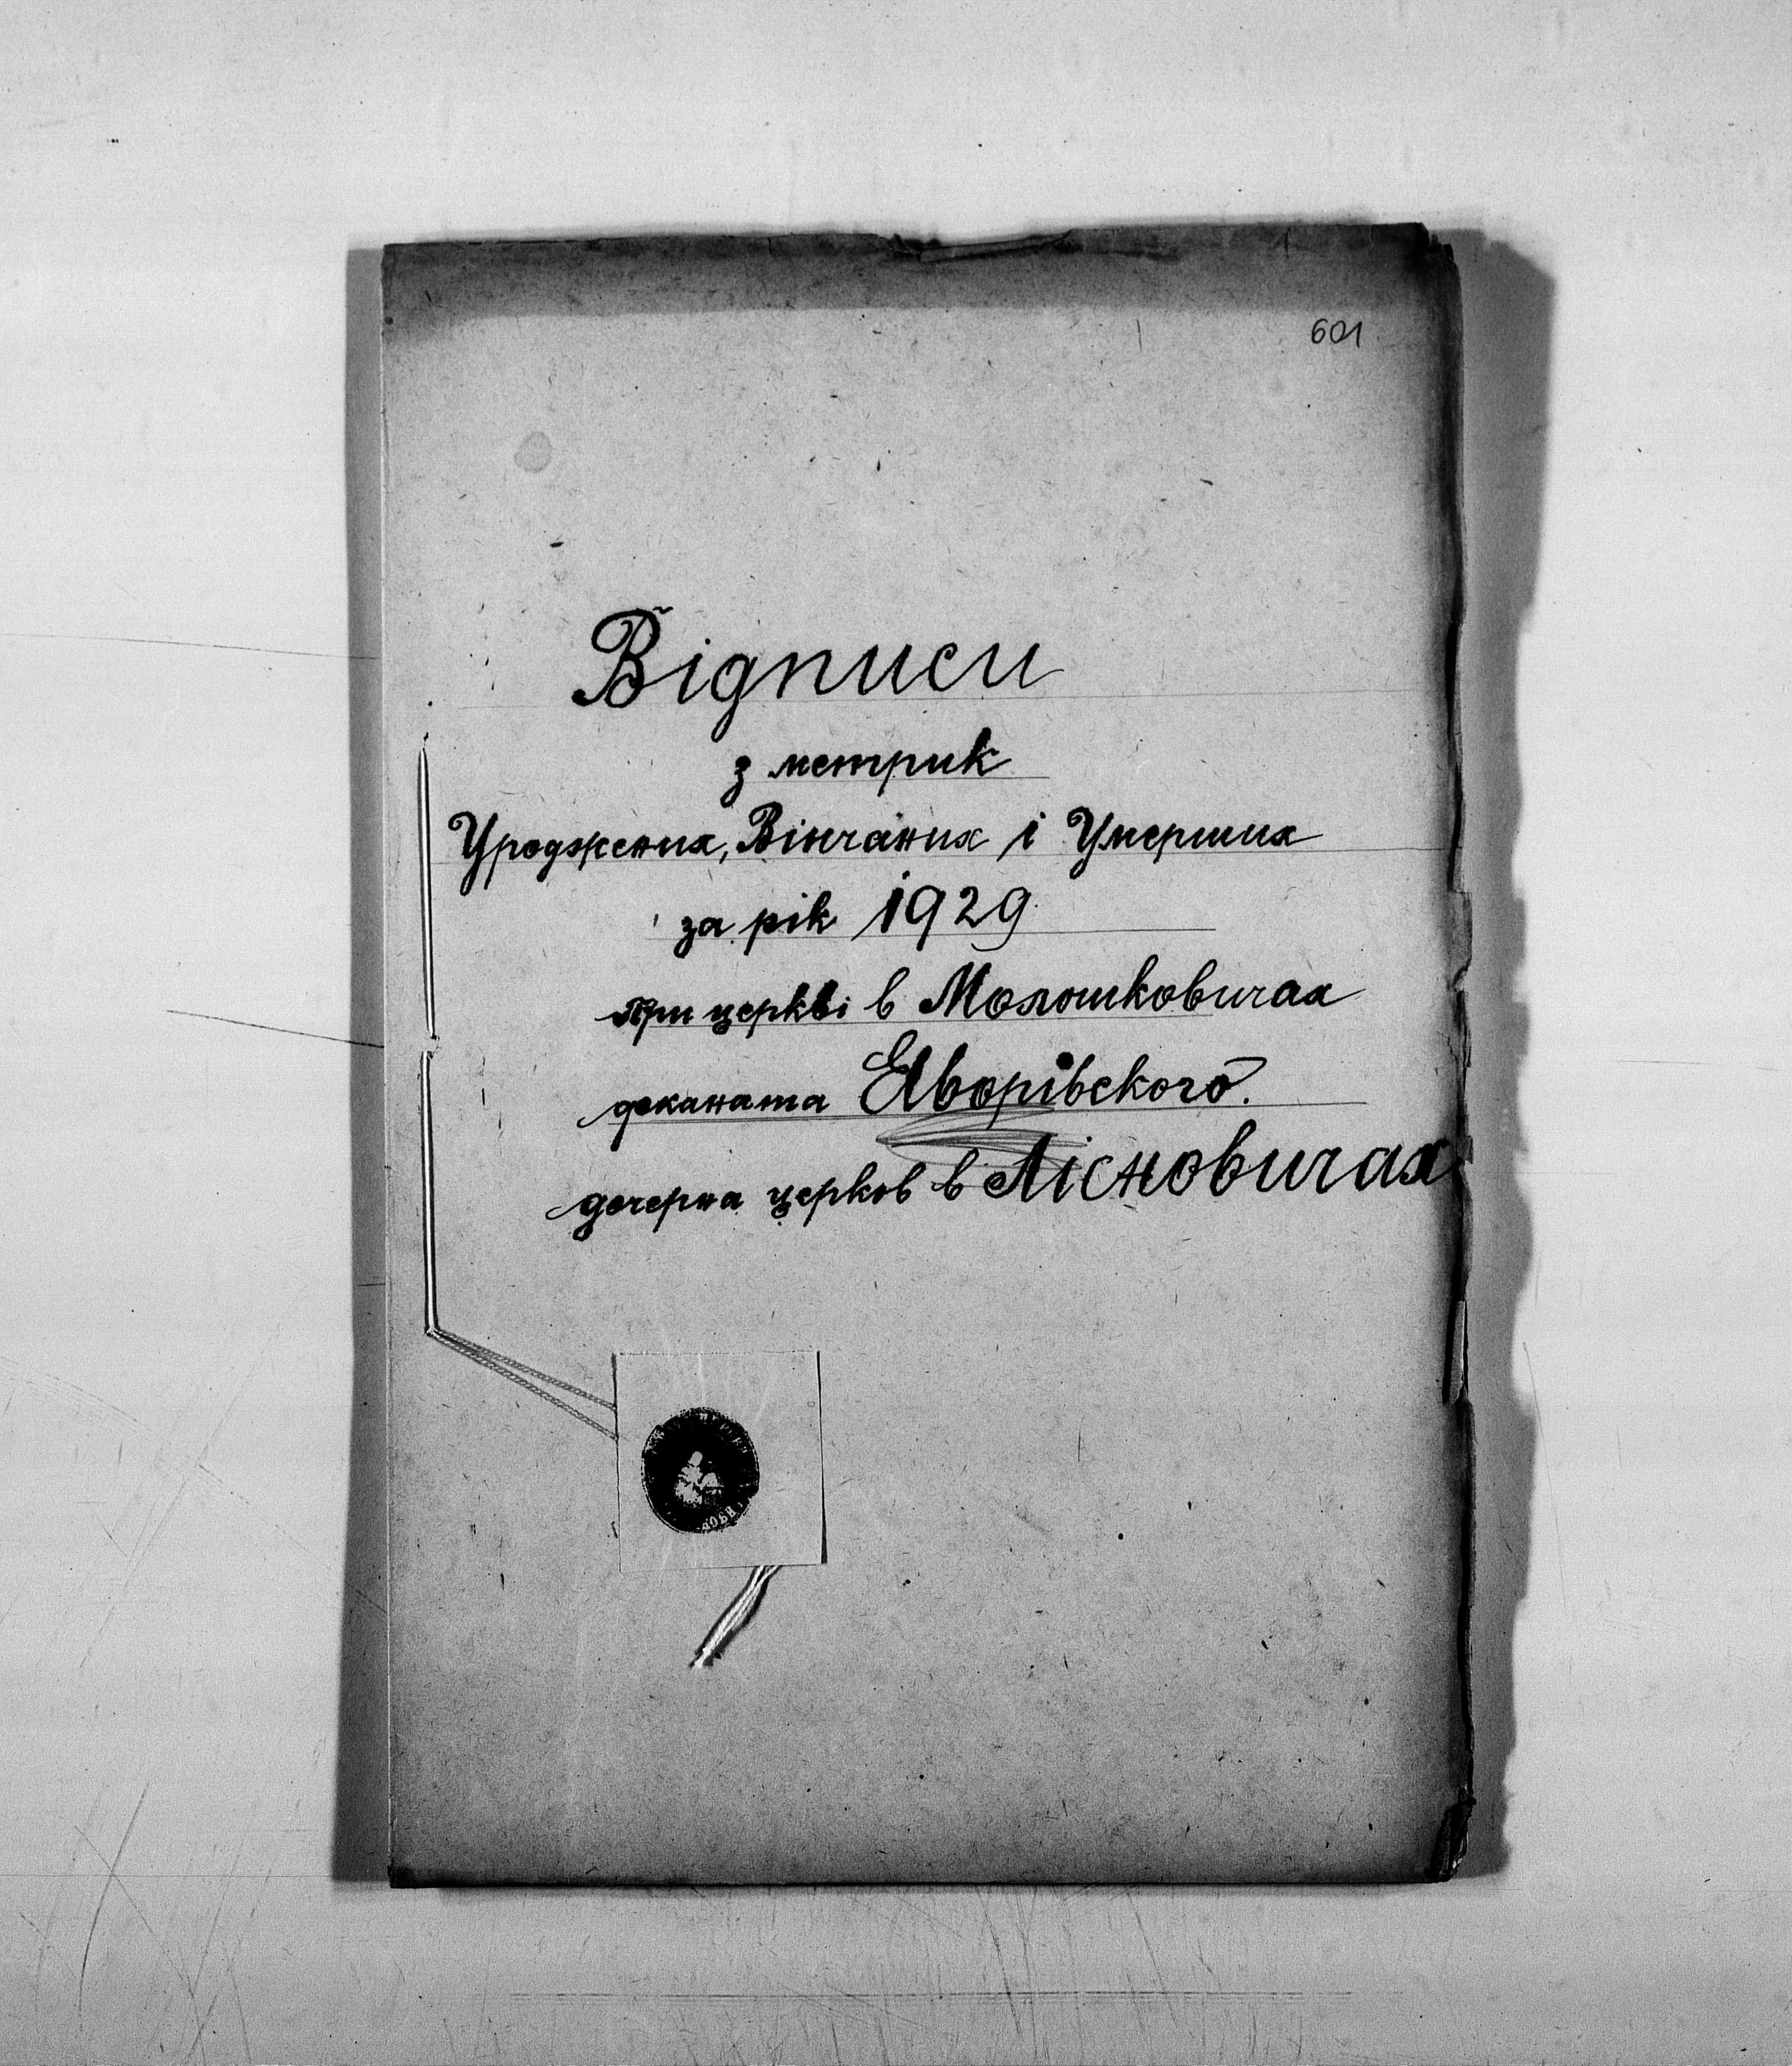 601
Відписи
з метрик
Уроджених, Вінчаних і Умерших
за рік 1929
при церкві в Молошковичах
деканата Яворівского.
дочерна церков в Лісновичах